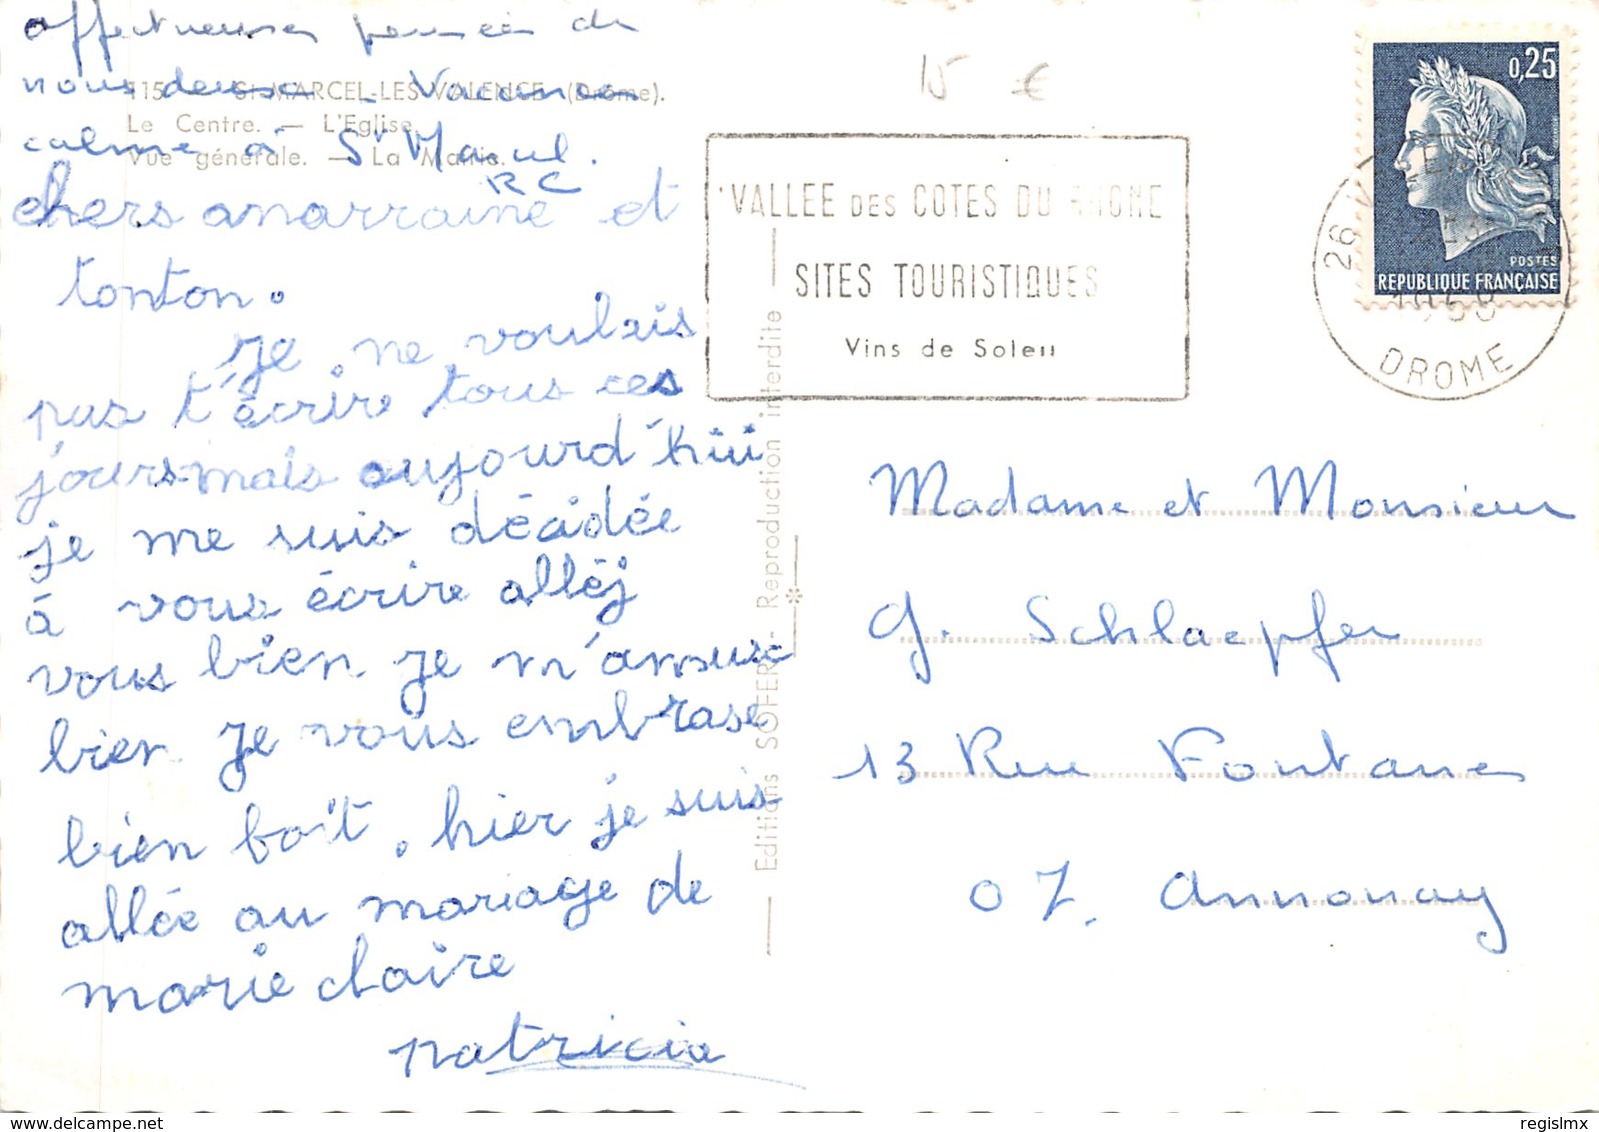 affectueuses pensées de
nous deux _ Vacances
115 - St-MARCEL-LES-VALENCE (Drôme).
Le Centre. — L'Eglise.
calme à St Marcel.
Vue générale. — La Mairie.
R C
chers anarraine et
tonton.
Je ne voulais
pas t'écrire tous ces
jours mais aujourd'hui
je me suis décidée
à vous écrire alléj
vous bien je m'amuse
bien Je vous embrase
bien boît. hier je suis
allée au mariage de
marie claire
patricia
Editions SOFER - Reproduction interdite
15 €
VALLEE DES COTES DU RHONE
SITES TOURISTIQUES
Vins de Soleil
0,25
POSTES
REPUBLIQUE FRANÇAISE
26 VALENCE
DROME
Madame et Monsieur
G. Schlaepfer
13 Rue Fontanes
07. Annonay
regislmx